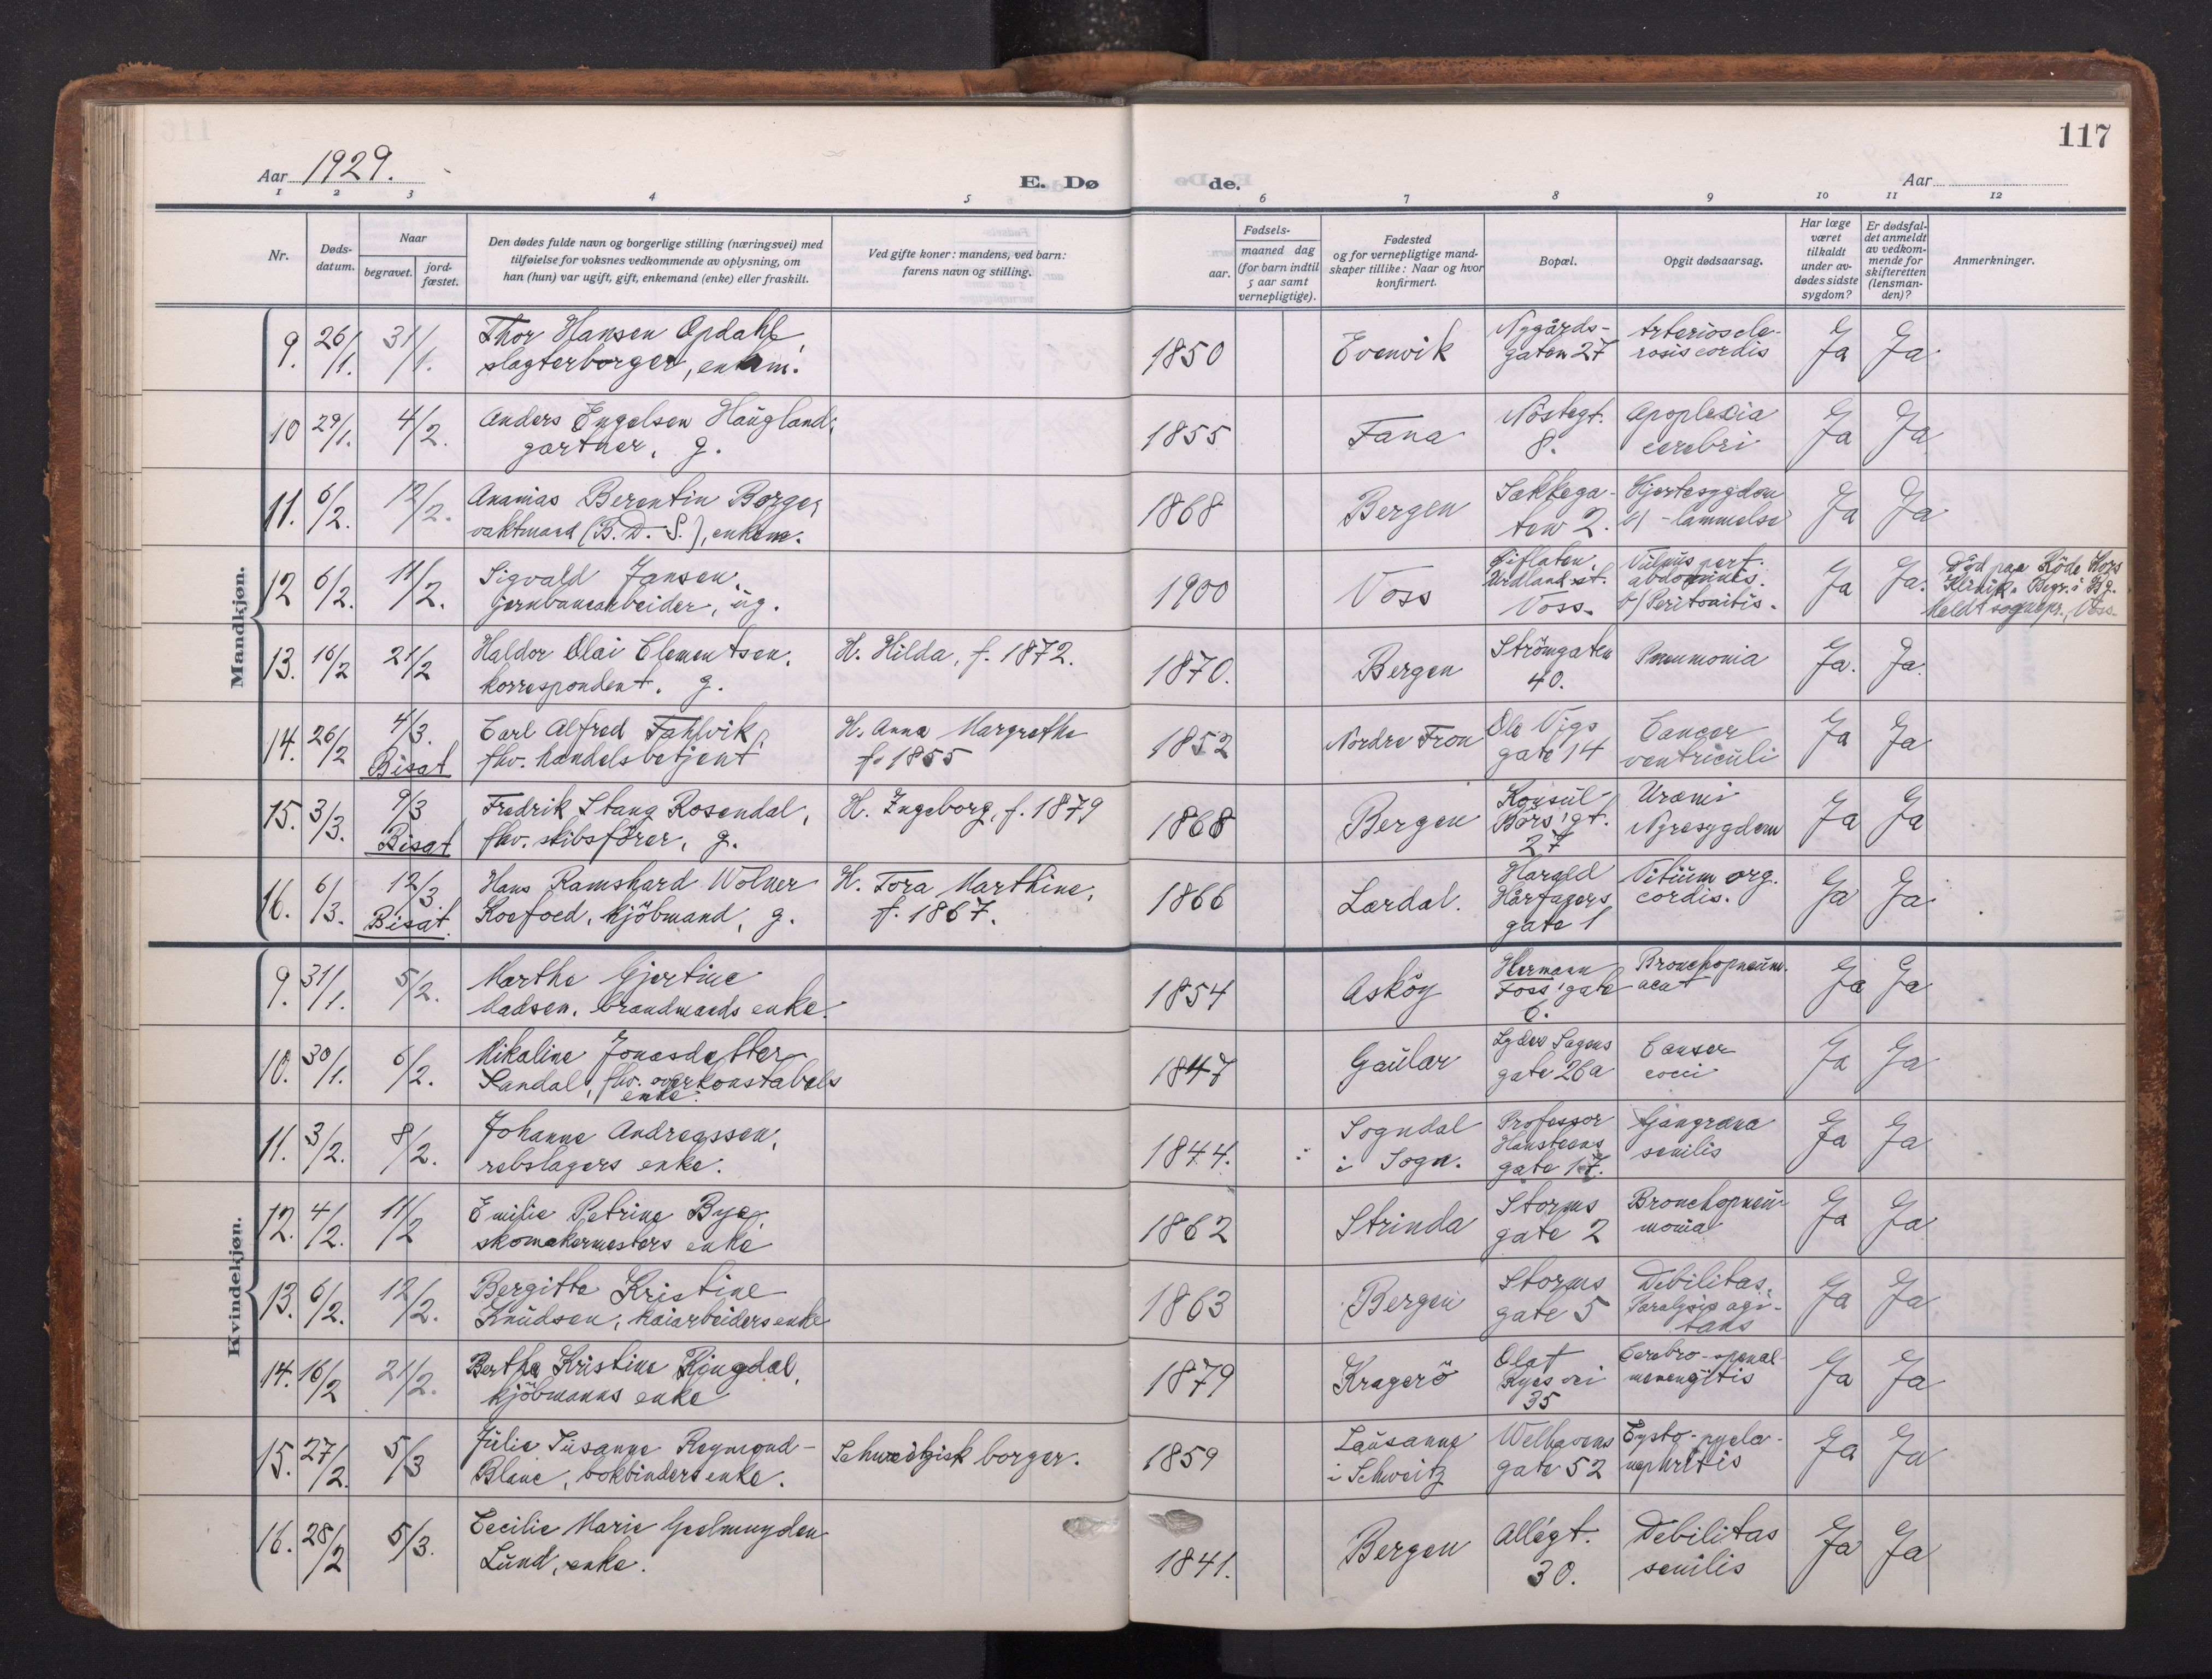 117
Aar 1929.
E. Døde.
Aar
1 2 3 4 5 6 7 8 9 10 11 12
Nr.
Døds-
datum.
Naar
begravet.
jord-
fæstet.
Den dødes fulde navn og borgerlige stilling (næringsvei) med
tilføielse for voksnes vedkommende av oplysning, om
han (hun) var ugift, gift, enkemand (enke) eller fraskilt.
Ved gifte koner: mandens, ved barn:
farens navn og stilling.
Fødsels-
aar.
maaned dag
(for barn indtil
5 aar samt
vernepligtige).
Fødested
og for vernepligtige mand-
skaper tillike: Naar og hvor
konfirmert.
Bopæl.
Opgit dødsaarsag.
Har læge
været
tilkaldt
under av-
dødes sidste
sygdom?
Er dødsfal-
det anmeldt
av vedkom-
mende for
skifteretten
(lensman-
den)?
Anmerkninger.
Mandkjøn.
9. 26/1. 31/1. Thor Hansen Opdahl, 1850 Evenvik Nygårds- Arterioscle- Ja Ja
slagterborger, enkem. gaten 27 rosis cordis
10 29/1. 4/2. Anders Engelsen Haugland, 1855 Fana Nöstegt. Apoplexia Ja Ja
gartner, g. 8. cerebri
11. 6/2. 12/2. Ananias Berentin Borge, 1868 Bergen Sækkega- Hjertesygdom Ja Ja
vaktmand (B. D. S.), enkem. ten 2. o/ -lammelse
12 6/2. 11/2. Sigvald Jansen, 1900 Voss Urdland st. Vulnus perf. Ja Ja. Död paa Röde Kors
jernbanearbeider, ug. Voss. abdominis. Klinik. Begr. i Bg.
o/ Peritonitis. Meldt sognepr., Voss.
13. 16/2 21/2 Haldor Olai Clementsen, H. Hilda, f. 1872. 1870. Bergen Strömgaten Pneumonia Ja. Ja.
korrespondent, g. 40.
14. 26/2 4/3. Carl Alfred Fahlvik, H. Anna Margrethe 1852 Nordre Fron Ole Vigs Cancer Ja Ja
Bisat fhv. handelsbetjent f. 1855 gate 14 ventriculi
15. 3/3. 9/3 Fredrik Stang Rosendal, H. Ingeborg, f. 1879 1868 Bergen Konsul Uræmi Ja Ja
Bisat fhv. skibsförer, g. Börs' gt. Nyresygdom
27
16. 6/3. 12/3. Hans Ramshard Wolner H. Tora Marthine, 1866 Lærdal. Harald Vitium org. Ja Ja
Bisat. Koefoed, kjöbmand, g. f. 1867. Hårfagers cordis.
gate 1
Kvindekjøn.
9. 31/1. 5/2. Marthe Gjertine 1854 Asköy Hermann Bronchopneum. Ja Ja
Madsen, brandmands enke. Foss' gate acut
6.
10. 30/1. 6/2. Mikaline Jonasdatter 1847 Gaular Lyder Sagens Cancer Ja Ja
Sandal, fhv. overkonstabels gate 26a coeci
enke.
11. 3/2. 8/2. Johanne Andreassen, 1844. Sogndal Professor Gangræna Ja Ja
rebslagers enke. i Sogn. Hansteens senilis
gate 17.
12. 4/2. 11/2 Emilie Petrine Bye, 1862 Strinda Storms Bronchopneu- Ja Ja
skomakermesters enke gate 2 monia
13. 6/2. 12/2. Bergitte Kristine 1863 Bergen Storms Debilitas, Ja Ja
Knudsen, kaiarbeiders enke gate 5 Paralysis agi-
tans
14. 16/2 21/2. Bertha Kristine Ringdal, 1879 Kragerö Olaf Cerebro-spinal- Ja Ja
kjöbmanns enke Ryes vei meningitis
35
15. 27/2. 5/3 Julie Susanne Reymond- Schweitzisk borger. 1859 Lausanne Welhavens Cysto-pyelo- Ja Ja
Blanc, bokbinders enke. i Schweitz gate 52 nephritis
16. 28/2 5/3. Cecilie Marie Geelmuyden 1841. Bergen Allégt. Debilitas Ja Ja
Lund, enke. 30. senilis